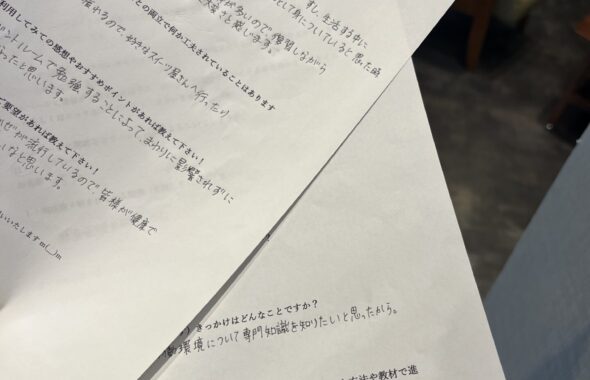 すし、生活する中に
して身についていると思った時
が多いので、復習しながら
大変さを感じます。
との両立で何か工夫されていることはあります
疲れるので、好きなスイーツ屋さんへ行ったり
利用してみての感想やおすすめポイントがあれば教えて下さい!
ントルームで勉強することによって、まわりに影響されずに
ったと思います。
ご要望があれば教えて下さい!
かぜが流行しているので皆様が健康で
いなと思います。
いいたします m(__)m
きっかけはどんなことですか?
環境について専門知識を知りたいと思ったから。
方法や教材で進